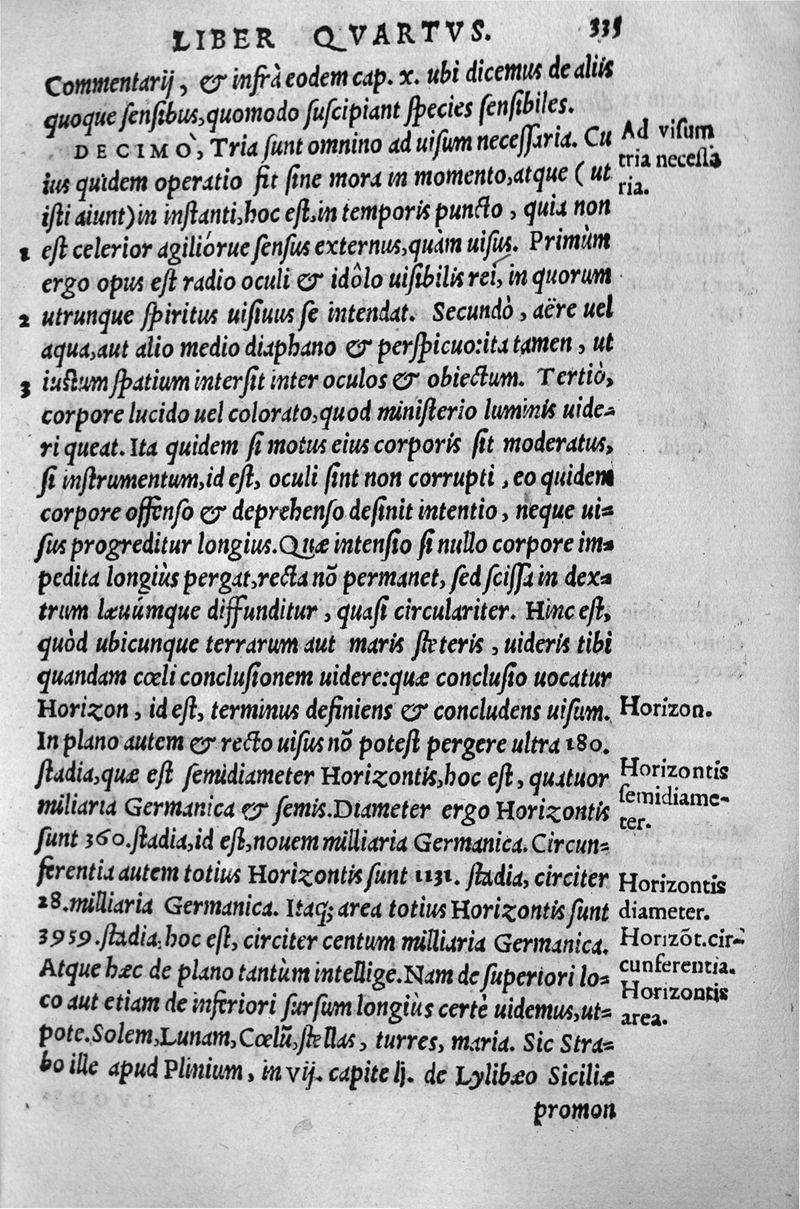 LIBER QVARTVS. 335
Commentarij, & infrà eodem cap. x. ubi dicemus de aliis
quoque sensibus, quomodo suscipiant species sensibiles.
DECIMÒ, Tria sunt omnino ad uisum necessaria. Cu
Ad visum
tria necessa
ria.
ius quidem operatio fit sine mora in momento, atque (ut
isti aiunt) in instanti, hoc est, in temporis puncto, quia non
1 est celerior agiliórue sensus externus, quàm uisus. Primùm
ergo opus est radio oculi & idôlo uisibilis rei, in quorum
2 utrunque spiritus uisiuus se intendat. Secundò, aëre uel
aqua, aut alio medio diaphano & perspicuo: ita tamen, ut
3 iustum spatium intersit inter oculos & obiectum. Tertiò,
corpore lucido uel colorato, quod ministerio luminis uide=
ri queat. Ita quidem si motus eius corporis sit moderatus,
si instrumentum, id est, oculi sint non corrupti, eo quidem
corpore offenso & deprehenso desinit intentio, neque ui=
sus progreditur longius. Quæ intensio si nullo corpore im=
pedita longiùs pergat, recta nõ permanet, sed scissa in dex=
trum læuúmque diffunditur, quasi circulariter. Hinc est,
quòd ubicunque terrarum aut maris steteris, uideris tibi
quandam cœli conclusionem uidere: quæ conclusio uocatur
Horizon, id est, terminus definiens & concludens uisum.
Horizon.
In plano autem & recto uisus nõ potest pergere ultra 180.
stadia, quæ est semidiameter Horizontis, hoc est, quatuor
Horizontis
semidiame-
ter.
miliaria Germanica & semis. Diameter ergo Horizontis
sunt 360. stadia, id est, nouem milliaria Germanica. Circun=
ferentia autem totius Horizontis sunt 1131. stadia, circiter
Horizontis
diameter.
28. milliaria Germanica. Itaq; area totius Horizontis sunt
3959. stadia, hoc est, circiter centum milliaria Germanica.
Horizõt. cir-
cunferentia.
Atque hæc de plano tantùm intellige. Nam de superiori lo=
co aut etiam de inferiori sursum longiùs certè uidemus, ut=
Horizontis
area.
pote. Solem, Lunam, Cœlũ, stellas, turres, maria. Sic Stra=
bo ille apud Plinium, in vij. capite ij. de Lylibæo Siciliæ
promon